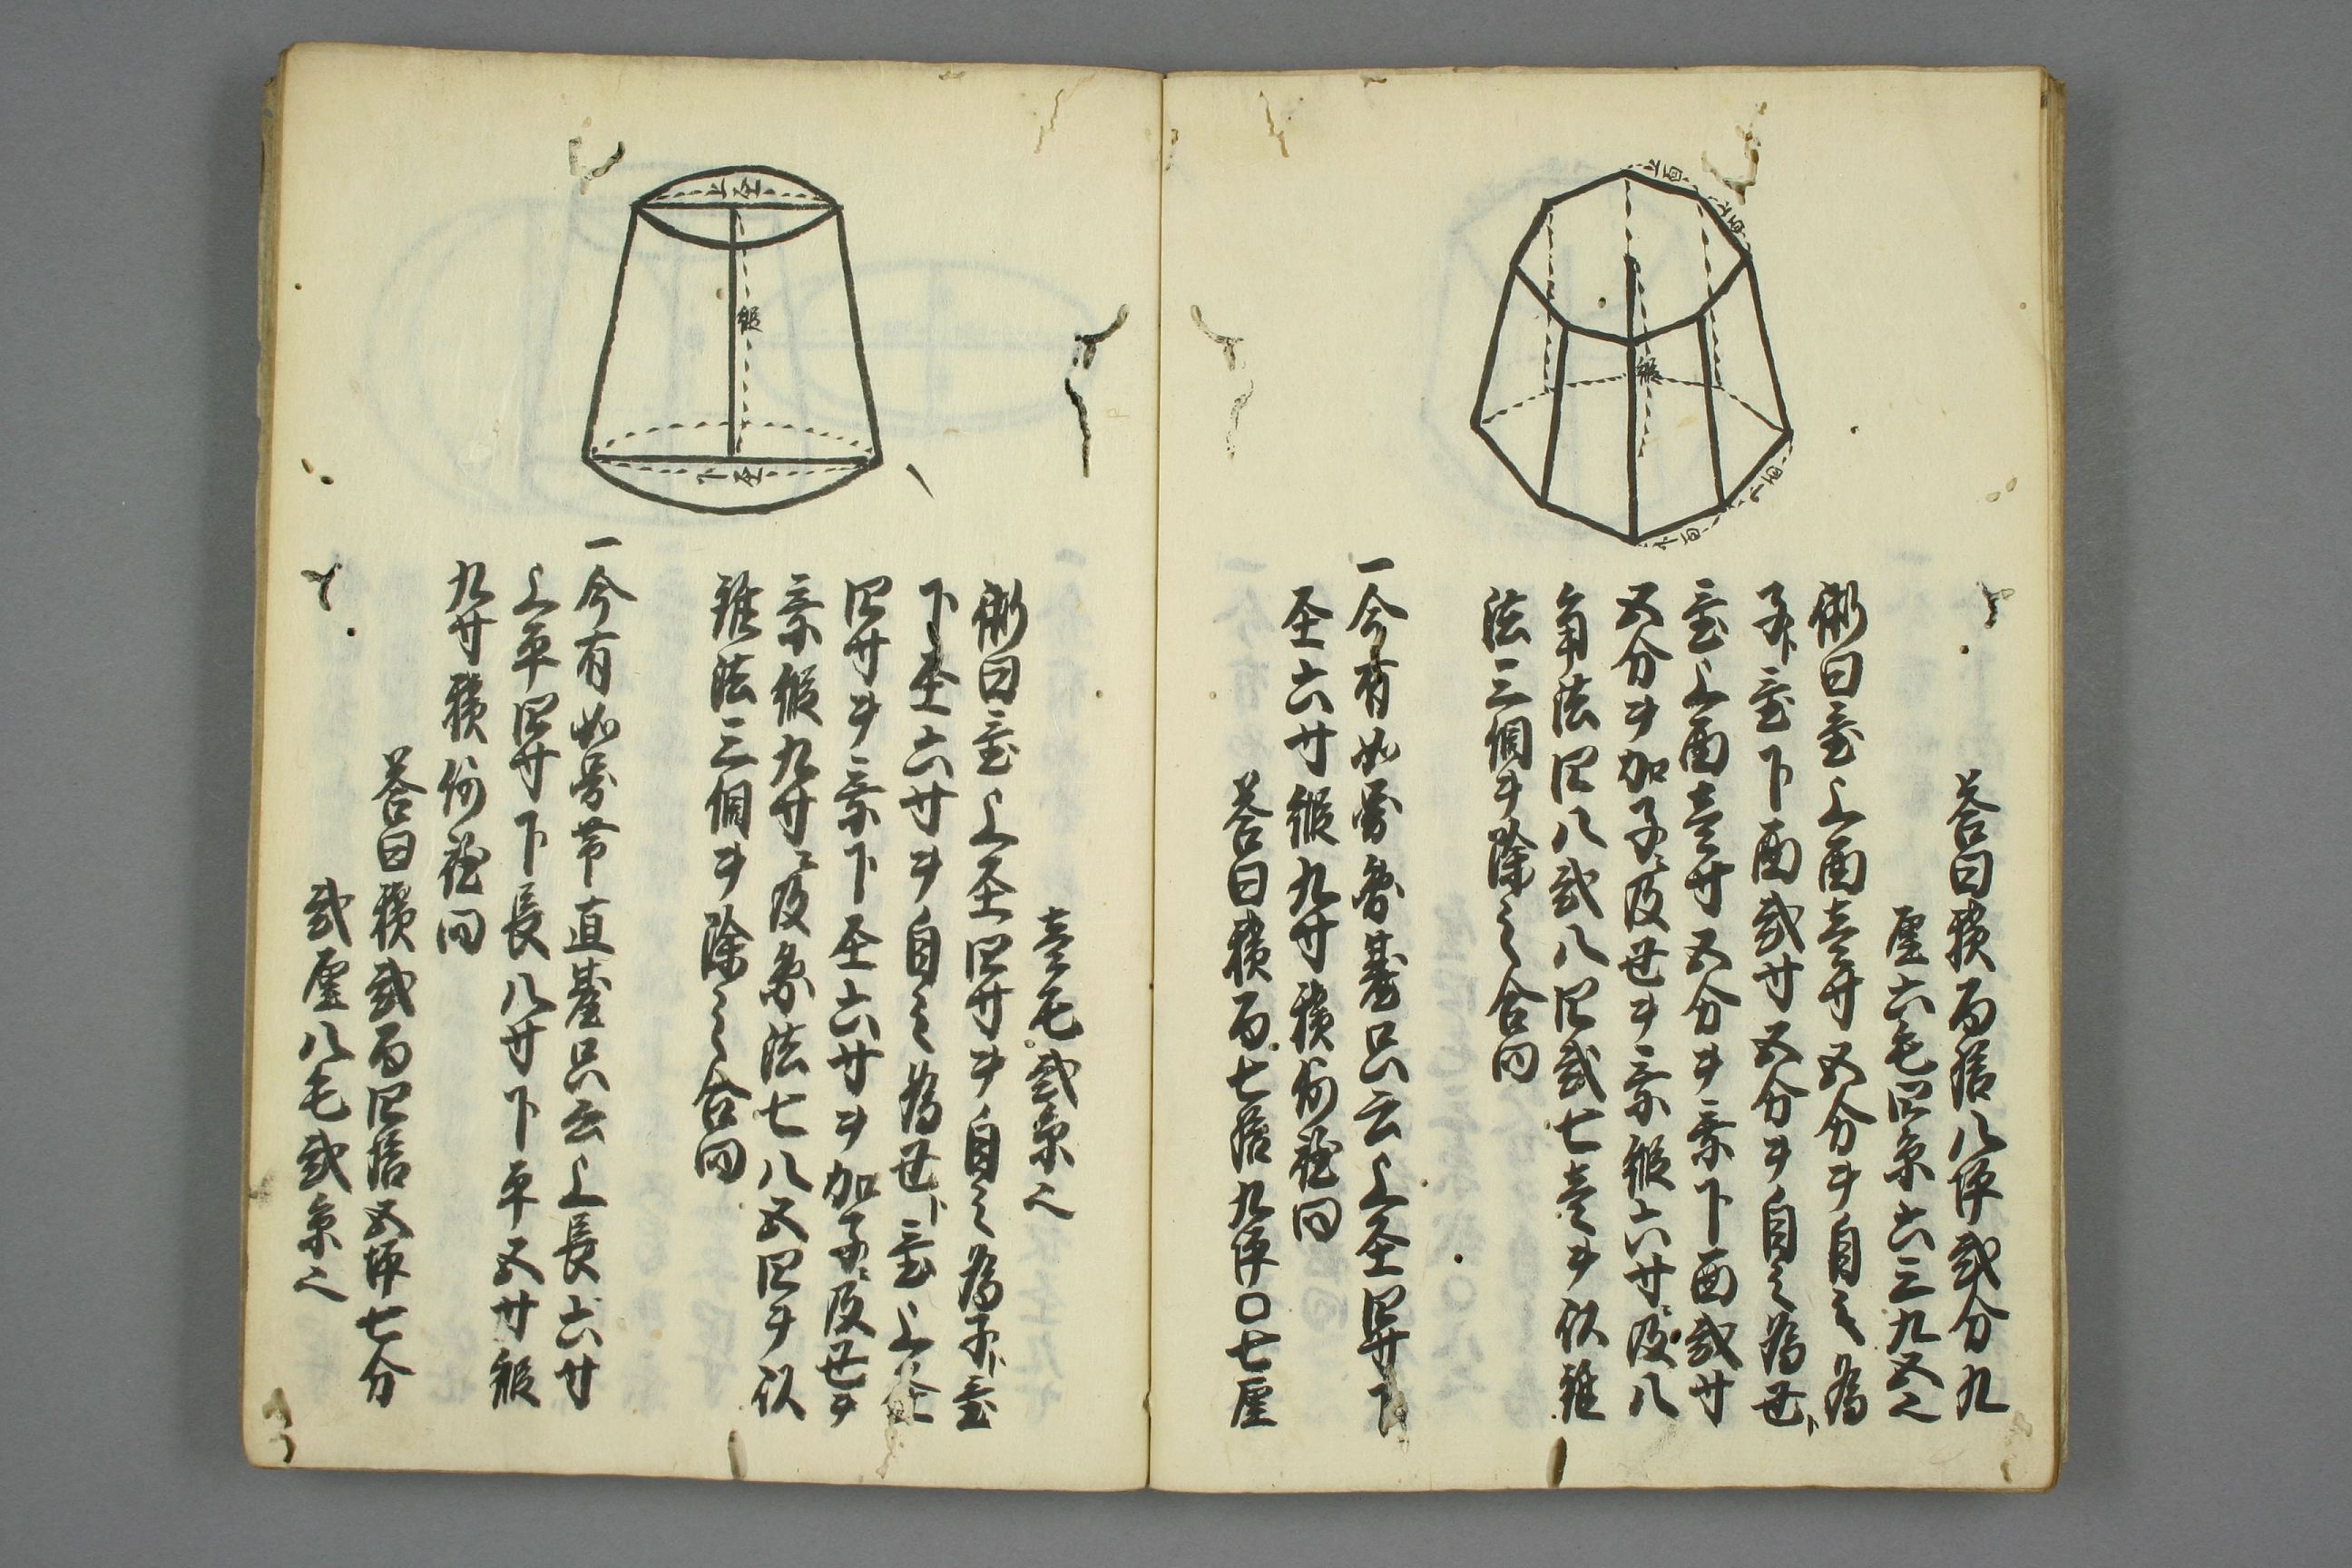 上面
上面
縦
下面
下面
答曰積百拾八坪弐分九
厘六毛四糸六三九五也
術曰置上面壱寸五分ヲ自之為
子ト置下面弐寸五分ヲ自之為丑ト
置上面壱寸五分ヲ乗下面弐寸
五分ヲ加子ニ及丑ヲ乗縦六寸ニ及八
角法四八弐八四弐七壱ヲ以錐
法三個ヲ除之合問
一今有如図円臺只云上径四寸下
径六寸縦九寸積何程問
答曰積百七拾九坪〇七厘
上径
縦
下径
壱毛弐糸也
術曰置上径四寸ヲ自之為子ト置
下径六寸ヲ自之為丑ト置上径
四寸ヲ乗下径六寸ヲ加子ニ及丑ヲ
乗縦九寸ニ及円法七八五四ヲ以
錐法三個ヲ除之合問
一今有如図帯直臺只云上長六寸
上平四寸下長八寸下平五寸縦
九寸積何程問
答曰積弐百四拾五坪七分
弐厘八毛弐糸也